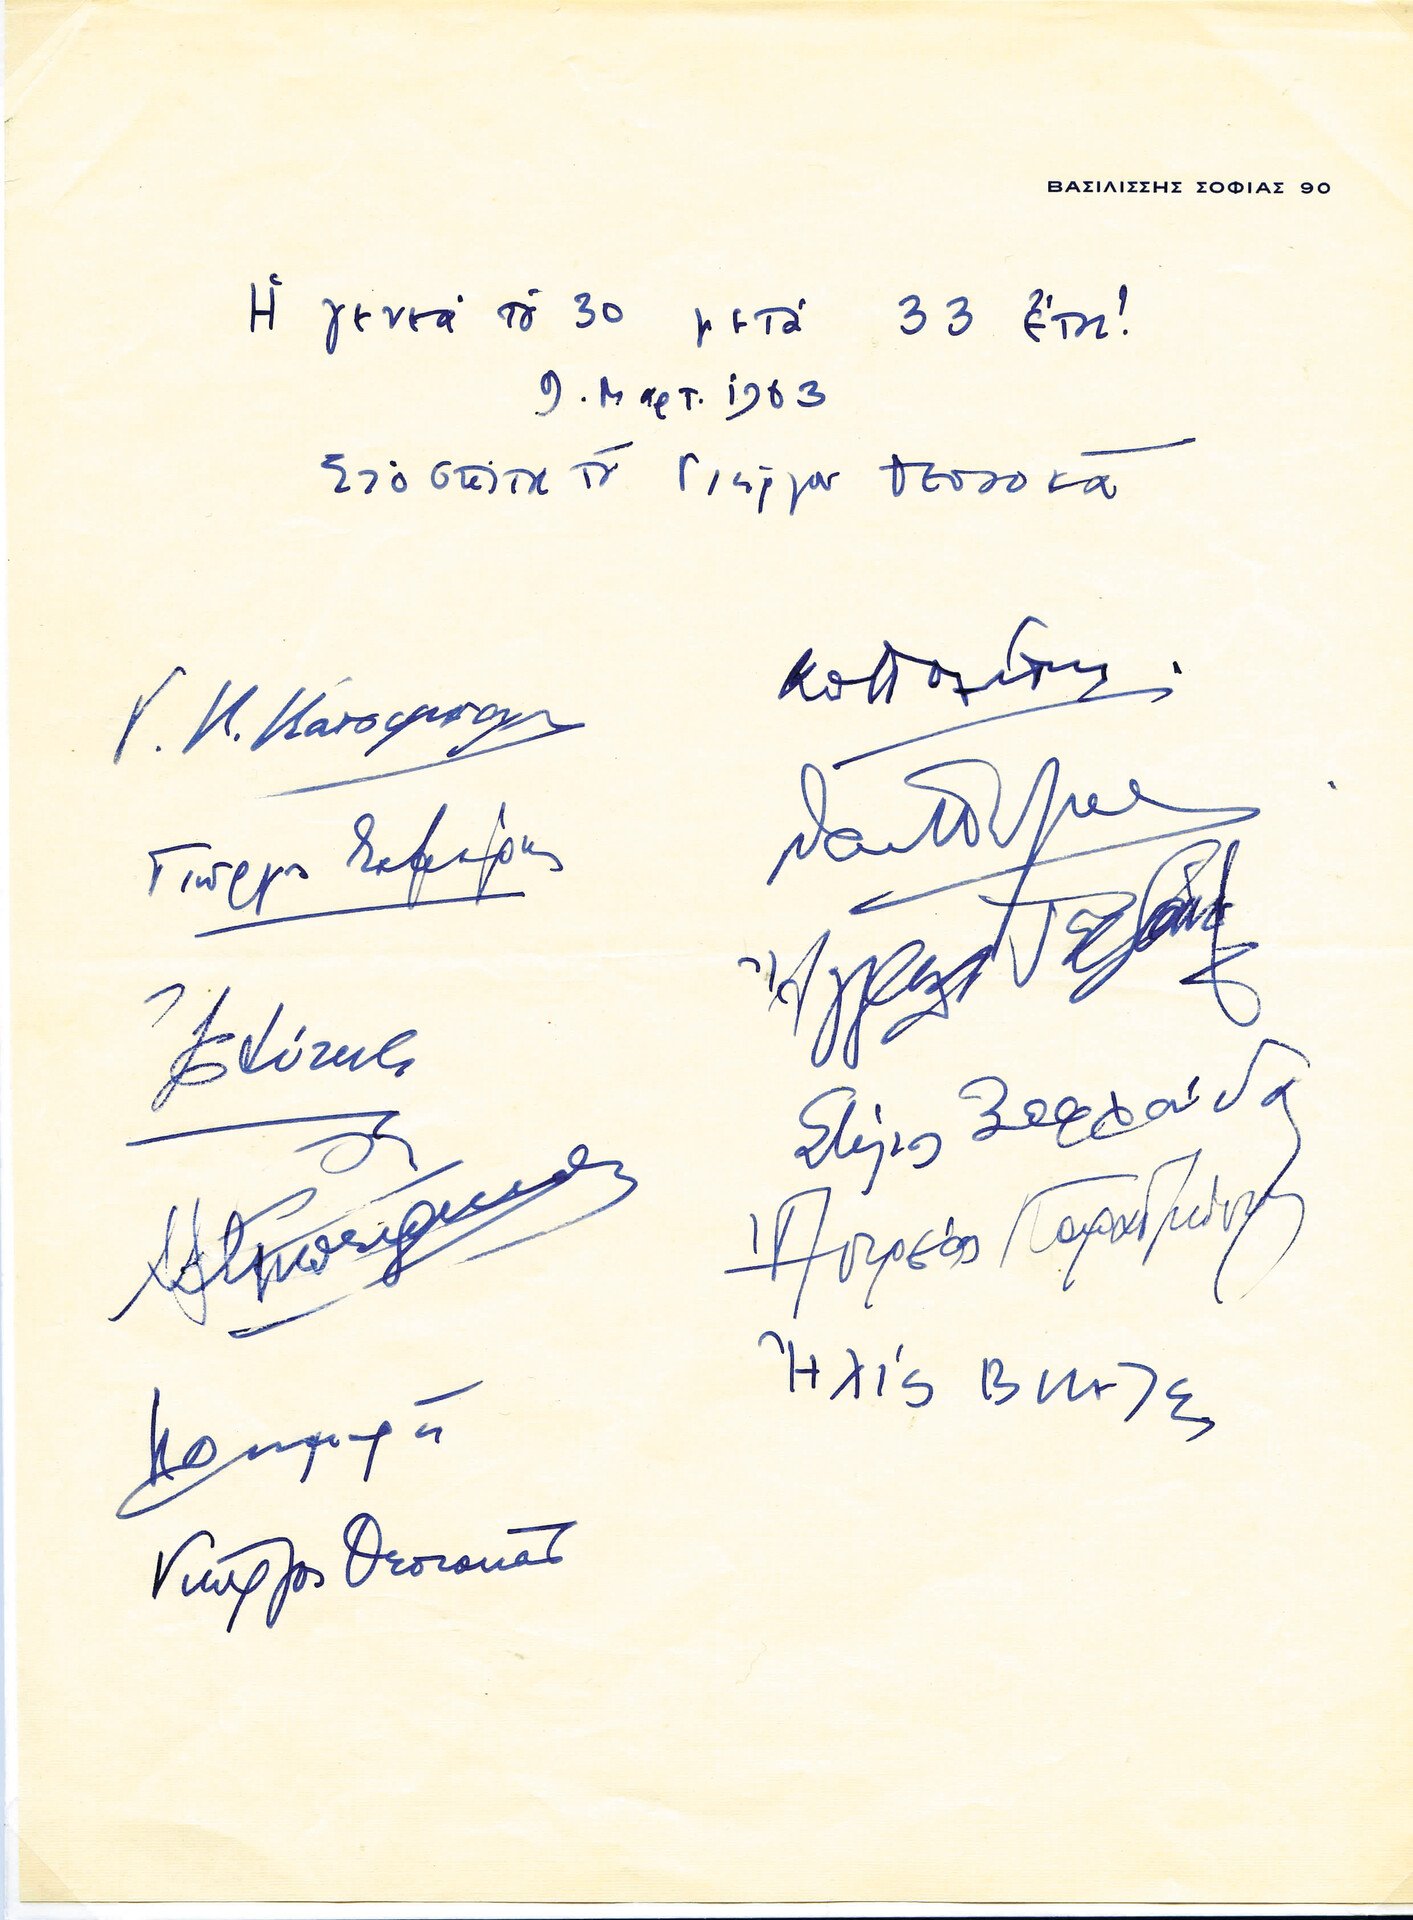 ΒΑΣΙΛΙΣΣΗΣ ΣΟΦΙΑΣ 90
Ἡ γενεά τοῦ 30 μετά 33 ἔτη!
9. Μαρτ. 1963
Στό σπίτι τοῦ Γιώργου Θεοτοκᾶ
Γ. Κ. Κατσίμπαλης
Γιῶργος Σεφέρης
Ἐλύτης
Γιῶργος Θεοτοκᾶς
Κ Θ Πολίτης
Ἄγγελος Τερζάκης
Στέλιος Ξεφλούδας
Ἀντρέας Καραντώνης
Ἠλίας Βενέζης